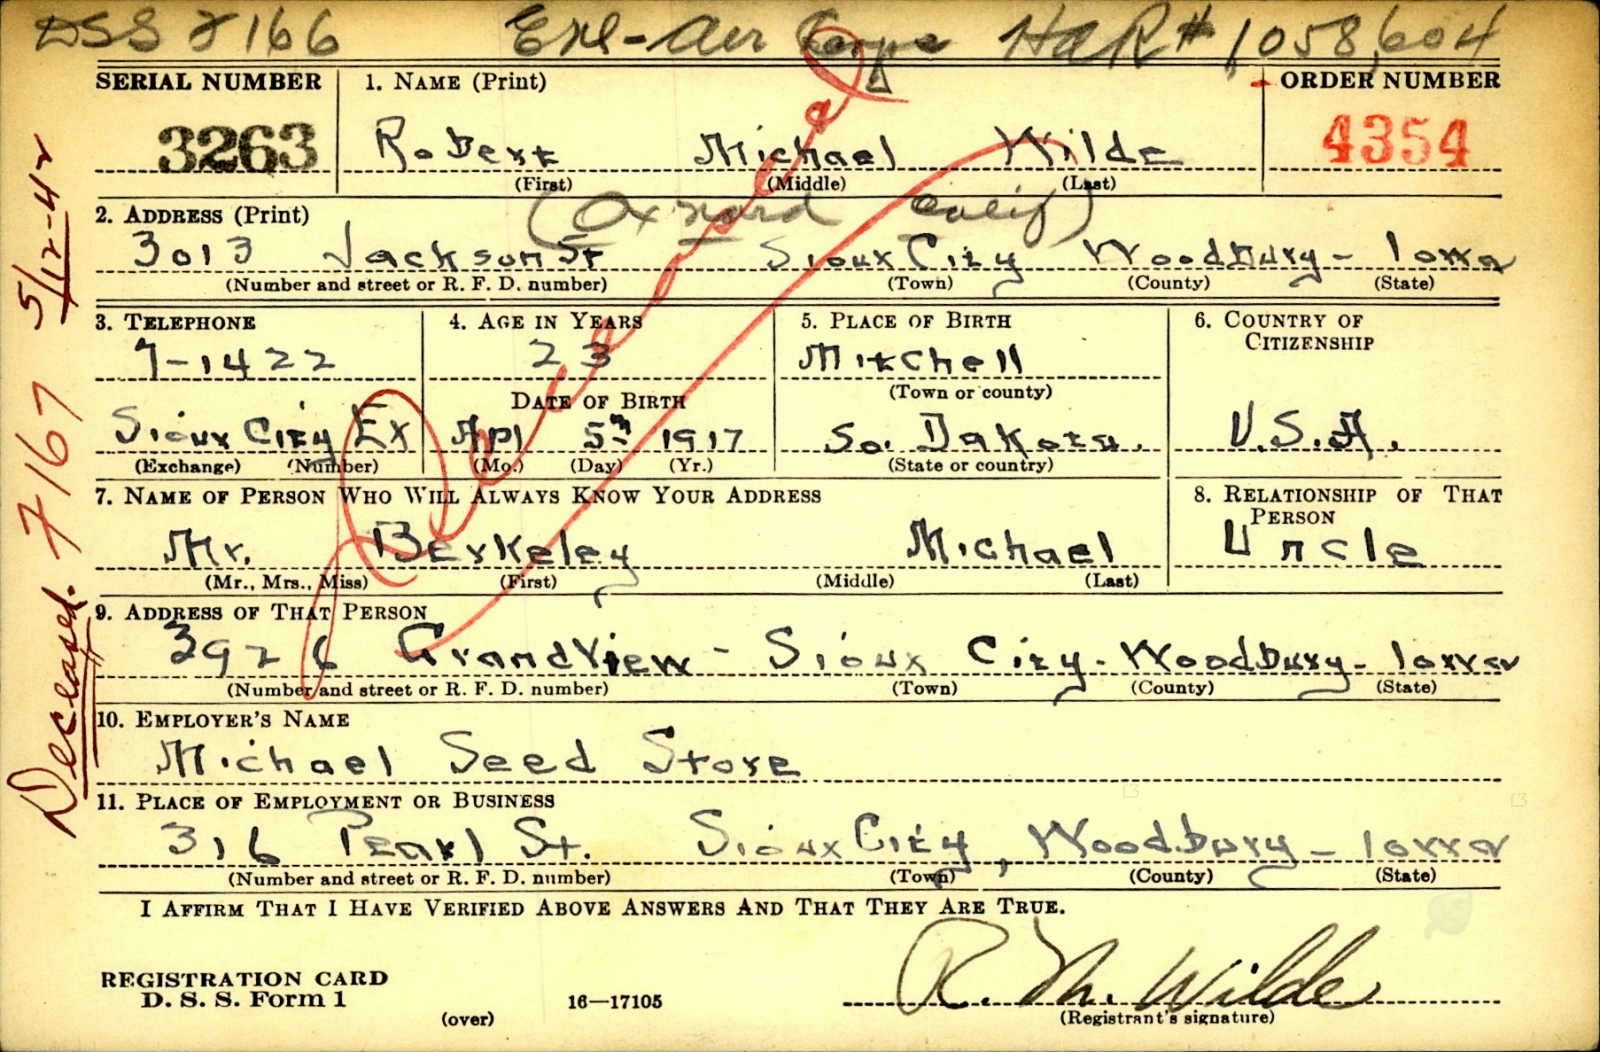 DSS 2 166 Enl-Air Corps HQR# 1,058,604
SERIAL NUMBER 1. NAME (Print) ORDER NUMBER
3263 Robert Michael Wilde 4354
(First) (Middle) (Last)
2. ADDRESS (Print) (Oxnard Calif)
3013 Jackson St Sioux City Woodbury - Iowa
(Number and street or R. F. D. number) (Town) (County) (State)
3. TELEPHONE 4. AGE IN YEARS 5. PLACE OF BIRTH 6. COUNTRY OF
CITIZENSHIP
7-1422 23 Mitchell
(Town or county)
DATE OF BIRTH
Sioux City Ex Apl 5th 1917 So. Dakota. U.S.A.
(Exchange) (Number) (Mo.) (Day) (Yr.) (State or country)
7. NAME OF PERSON WHO WILL ALWAYS KNOW YOUR ADDRESS 8. RELATIONSHIP OF THAT
PERSON
Mr. Berkeley Michael Uncle
(Mr., Mrs., Miss) (First) (Middle) (Last)
9. ADDRESS OF THAT PERSON
3926 Grandview - Sioux City - Woodbury - Iowa
(Number and street or R. F. D. number) (Town) (County) (State)
10. EMPLOYER'S NAME
Michael Seed Store
11. PLACE OF EMPLOYMENT OR BUSINESS
316 Pearl St. Sioux City, Woodbury - Iowa
(Number and street or R. F. D. number) (Town) (County) (State)
I AFFIRM THAT I HAVE VERIFIED ABOVE ANSWERS AND THAT THEY ARE TRUE.
REGISTRATION CARD
D. S. S. Form 1 16—17105 R. M. Wilde
(over) (Registrant's signature)
Deceased
Deceased. 7167 5/12-42